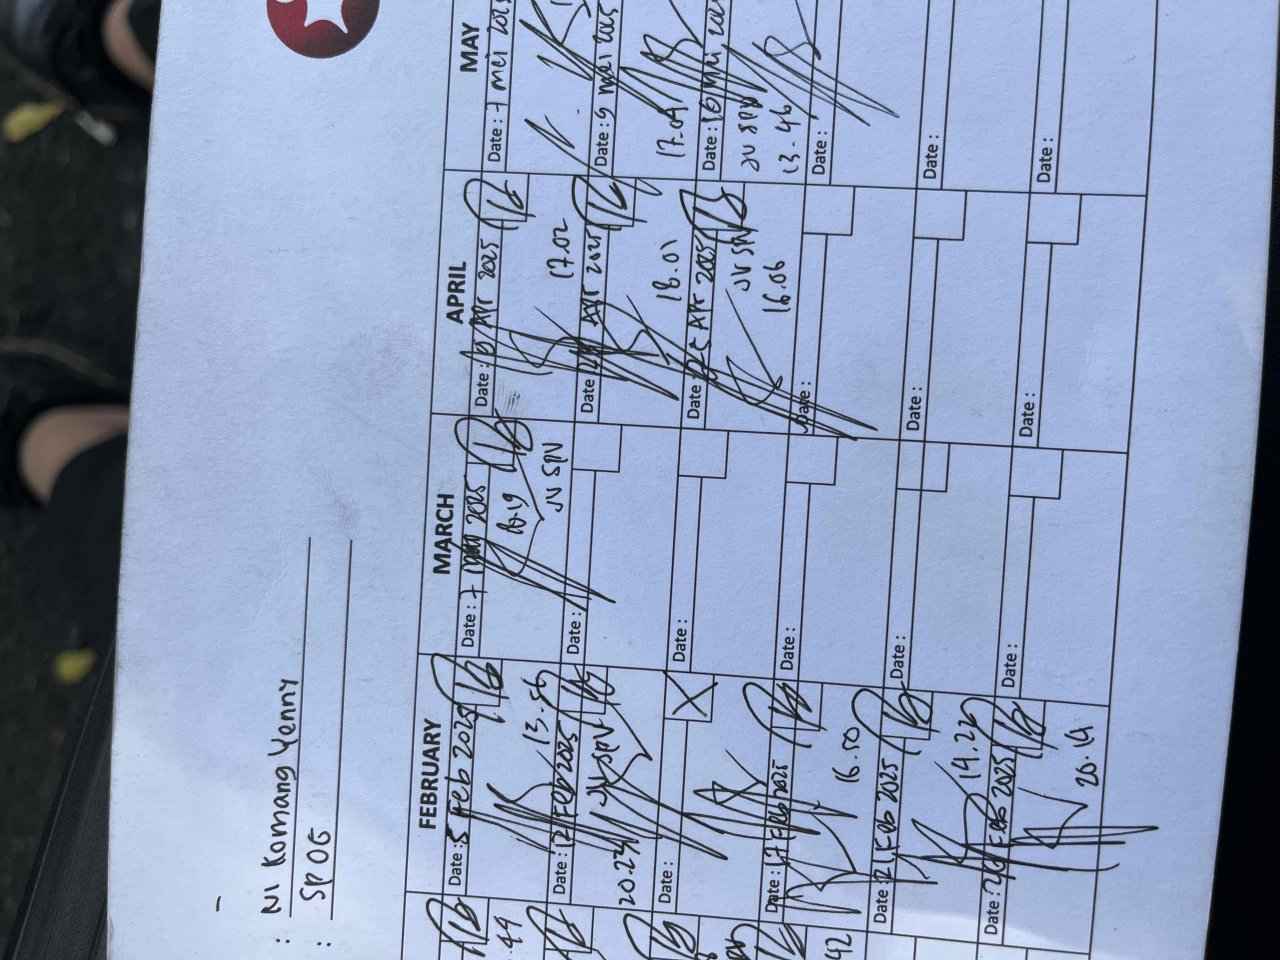 : Ni Komang Yenny
: SP OG
FEBRUARY
MARCH
APRIL
MAY
Date : 5 Feb 2025
13.56
Date : 12 Feb 2025
JV SPV
20.23
Date :
X
Date : 17 Feb 2025
16.50
Date : 21 Feb 2025
19.25
Date : 26 Feb 2025
20.14
Date : 7 2025
18.19
JV SPV
Date :
Date :
Date :
Date :
Date :
Date : Apr 2025
17.02
Date Apr 2025
18.01
Date 25 Apr 2025
JV SPV
16.06
Date :
Date :
Date :
Date : 7 mei 2025
Date : 9 mei 2025
17.09
Date : 16 mei
JV SPV
13.46
Date :
Date :
Date :
.44
42